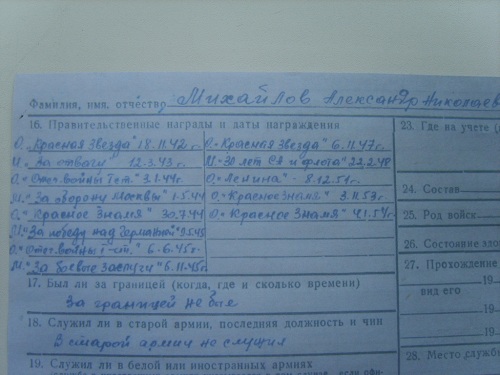 Фамилия, имя, отчество Михайлов Александр Николаев
16. Правительственные награды и даты награждения
О. „Красная Звезда" 18.11.42 г.
М. „За отвагу" 12.3.43 г.
О. „Отеч. войны I ст." 3.1.44 г.
М. „За оборону Москвы" 1.5.44
О. „Красное Знамя" 30.7.44
М. „За победу над Германией" 9.5.45
О. „Отеч. войны I-ст." 6.6.45 г.
М. „За боевые заслуги" 6.11.45 г.
О. „Красная Звезда" 6.11.47 г.
М. „30 лет СА и флота" 22.2.48
О. „Ленина" - 8.12.51 г.
О. „Красное Знамя" 3.11.53 г.
О. „Красное Знамя"
17. Был ли за границей (когда, где и сколько времени)
За границей не был
18. Служил ли в старой армии, последняя должность и чин
В старой армии не служил
19. Служил ли в белой или иностранных армиях
23. Где на учете
24. Состав
25. Род войск
26. Состояние здо
27. Прохождение
вид его
19
19
19
28. Место служб